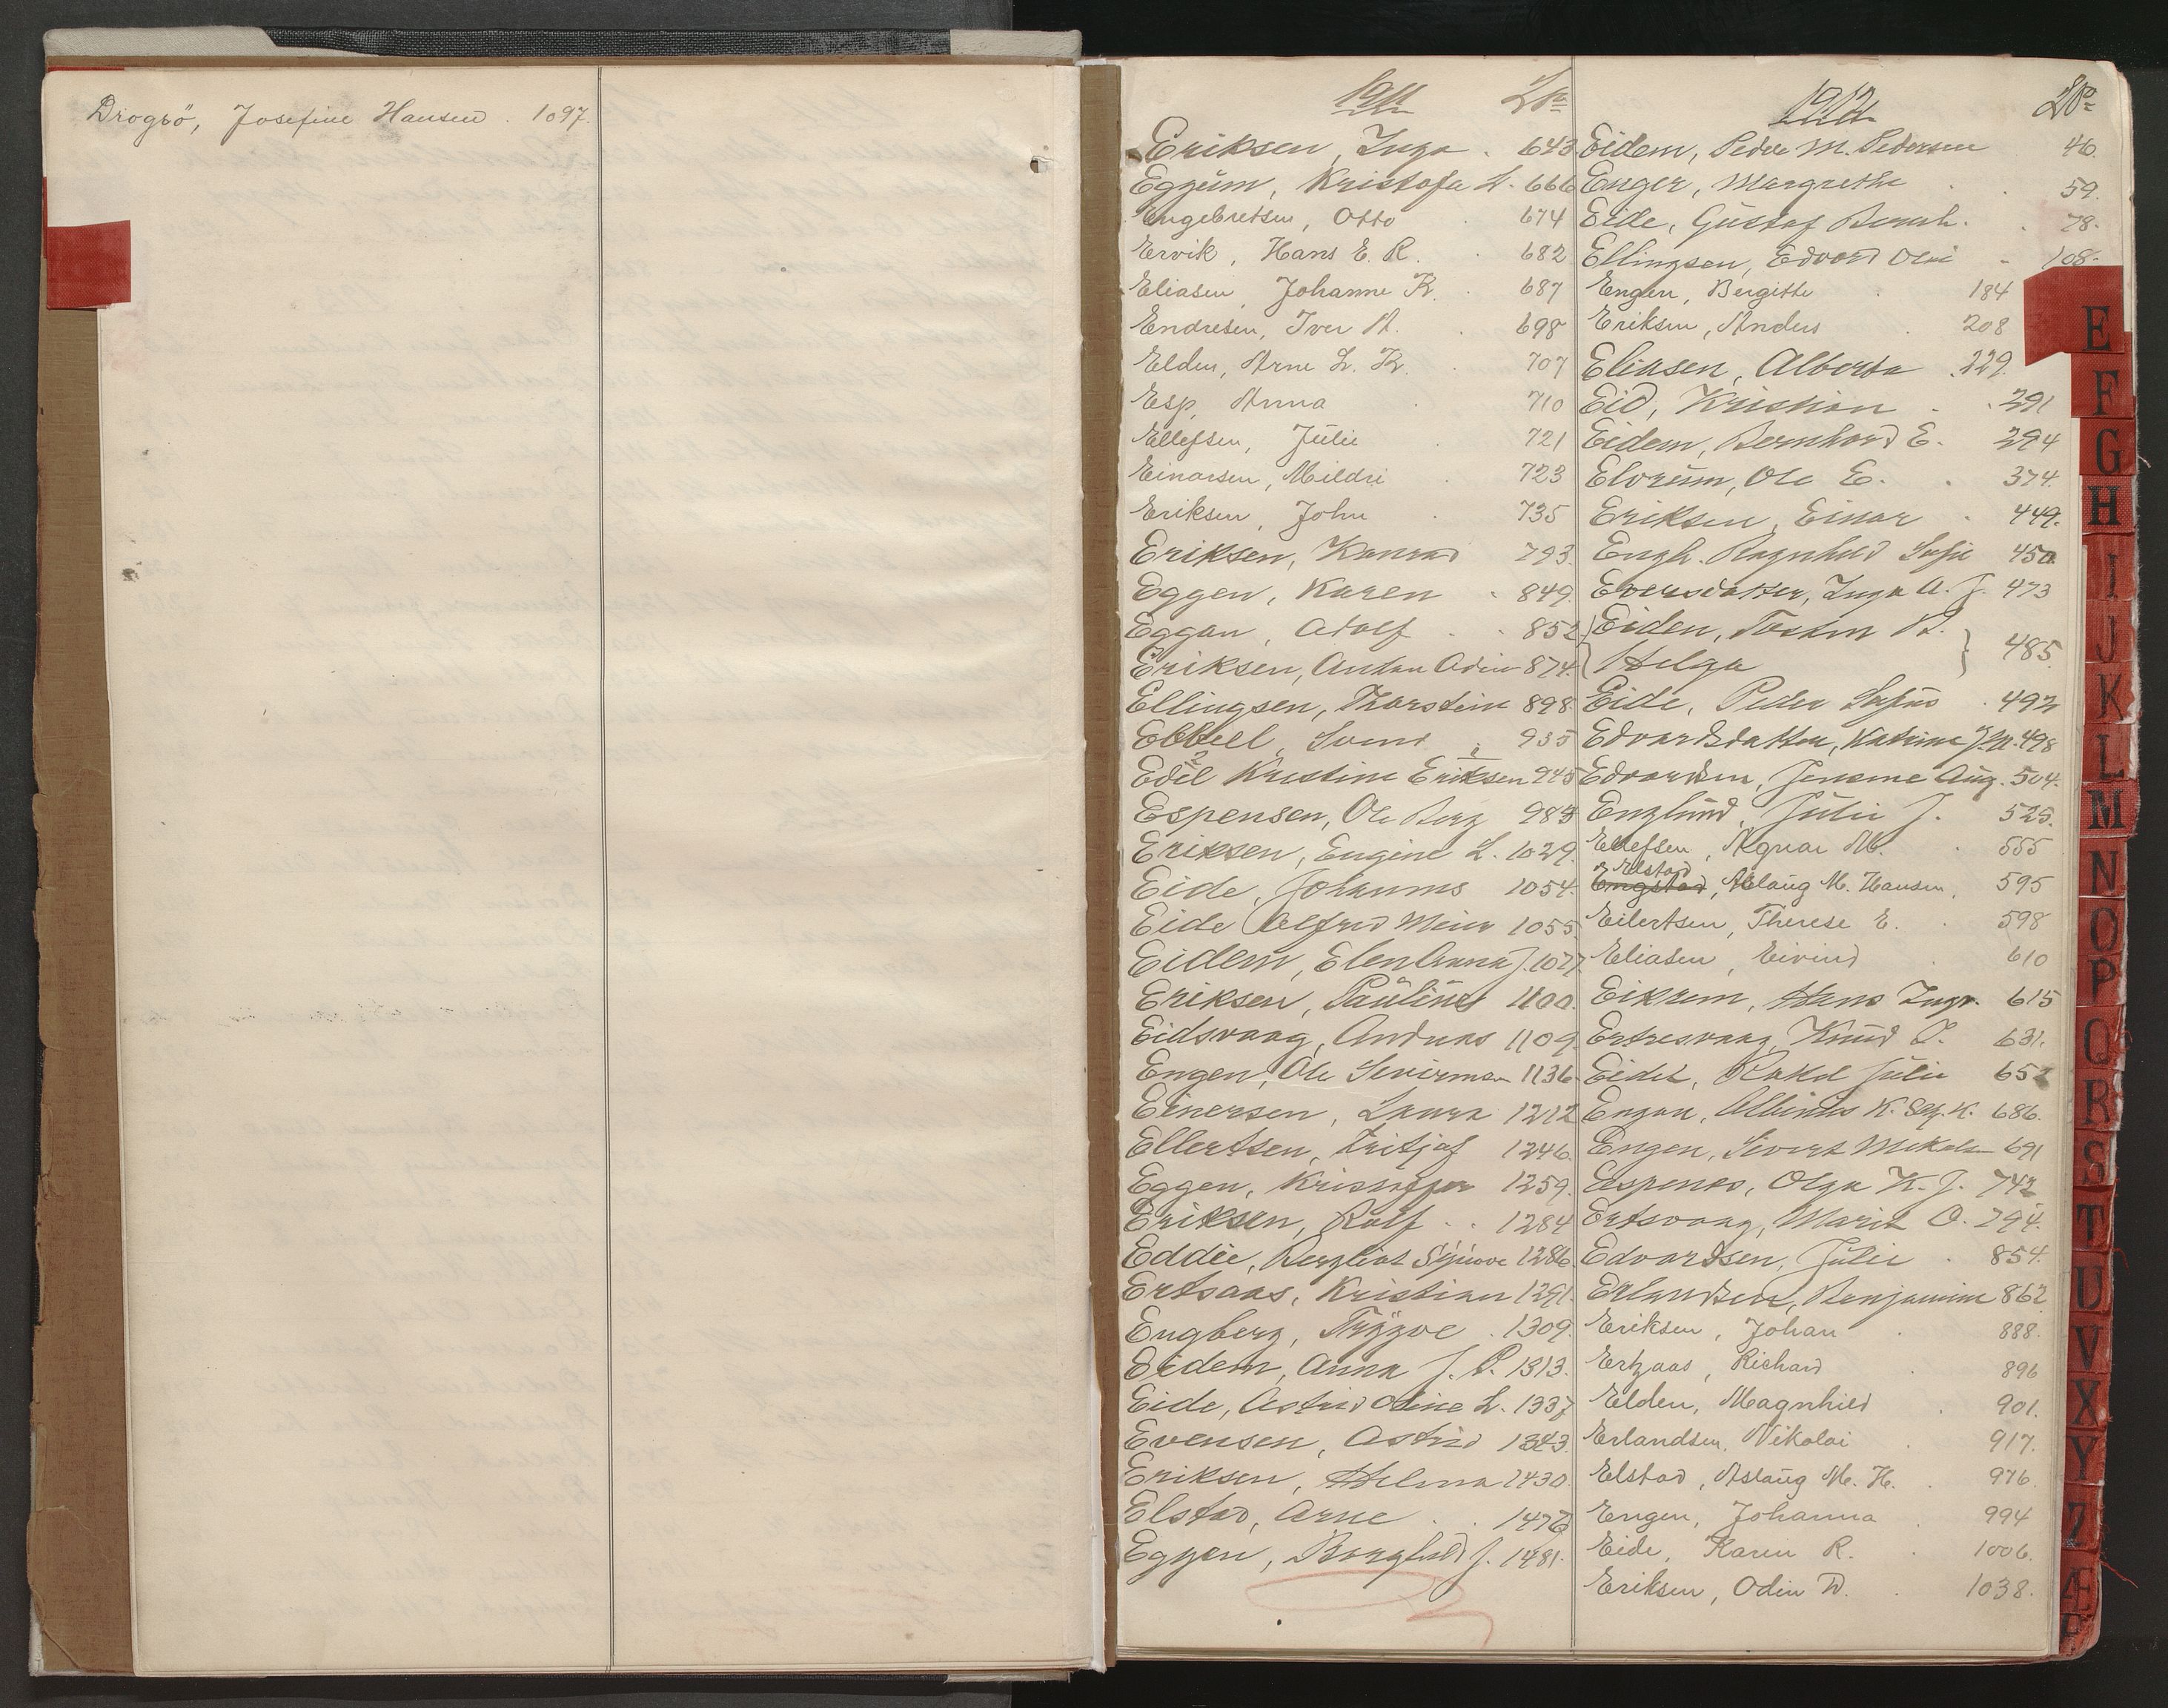 Drogsö, Josefine Hansen . 1097.
1911 No
Eriksen, Inga . 643
Eggum, Kristofa L. 666
Engebretsen, Otto . 674
Ervik, Hans E. R. . 682
Eliasen, Johanne K. . 687
Endresen, Iver A. . 698
Elden, Arne L. K. . 707
Esp, Anna . 710
Ellefsen, Julie . 721
Einarsen, Mildri . 723
Eriksen, John . 735
Eriksen, Konrad 793.
Eggen, Karen . 849.
Eggan, Adolf . . 852
Eriksen, Anton Odin 874.
Ellingsen, Thorstein 898.
Ebbell, Svend . 935
Edel Kristine Eriksen 945
Espensen, Ole Berg 983
Eriksen, Eugine L. 1029.
Eide, Johannes 1054.
Eide Alfred Meier 1055
Eidem, Elen Anna J. 1077.
Eriksen, Pauline 1100.
Eidsvaag, Andreas 1109.
Engen, Ole 1136.
Einersen, Laura 1212
Ellertsen, Fritjof 1246.
Eggen, Kristoffer 1259.
Eriksen, Rolf . . 1284
Eddie, Bergliot 1286.
Ertsaas, Kristian 1291.
Engberg, Trygve . 1309.
Eidem, Anna J. P. 1313.
Eide, Astrid Oline L. 1337
Evensen, Astrid 1343.
Eriksen, Helma 1430.
Elstad, Arne . . 1476
Eggen, Borghild J. 1481.
1912 No
Eidem, Peder M. Pedersen 46.
Enger, Margrethe . . 59.
Eide, Gustaf Bernh. . 78.
Ellingsen, Edvard Olai . 108.
Engen, Bergitte . 184
Eriksen, Anders . 208
Eliasen, Alberta . 229.
Eid, Kristian . . 291
Eidem, Bernhard E. . 294
Elvrum, Ole E. . 374.
Eriksen, Einar . 449.
Engh. Ragnhild Sofie 450
Eversdatter, Inga A. J. 473
Eiden, Torten A.
Helga } 485.
Eide, Peder . 492
Edvardsdatter, Katrine J. M. 498
Edvardsen, Jensine Aug. 504.
Englund, Julie J. 525.
Ellefsen, Agnar M. . 555
Elstad
Engstad, Aslaug M. Hansen. 595
Eilertsen, Therese E. . 598
Eliasen, Eivind . 610
Eikrem, Hans Ingv. 615
Ertresvaag, Knud O. 631.
Eidet, Rakel Julie 652
Engan, K. 686.
Engen, Sivert 691
Espenes, Olga K. J. 742
Ertsvaag, Marit O. 794.
Edvardsen, Julie . 854.
Erlandsen, Benjamin 862
Eriksen, Johan . 888.
Ertzaas, Richard . 896
Elden, Magnhild . 901.
Erlandsen. Nikolai . 917.
Elstad, Aslaug M. H. . 976.
Engen, Johanna . 994
Eide, Karen R. . 1006.
Eriksen, Odin D. . 1038.
E
F
G
H
I
J
K
L
M
N
O
P
Q
R
S
T
U
V
X
Y
Z
Æ